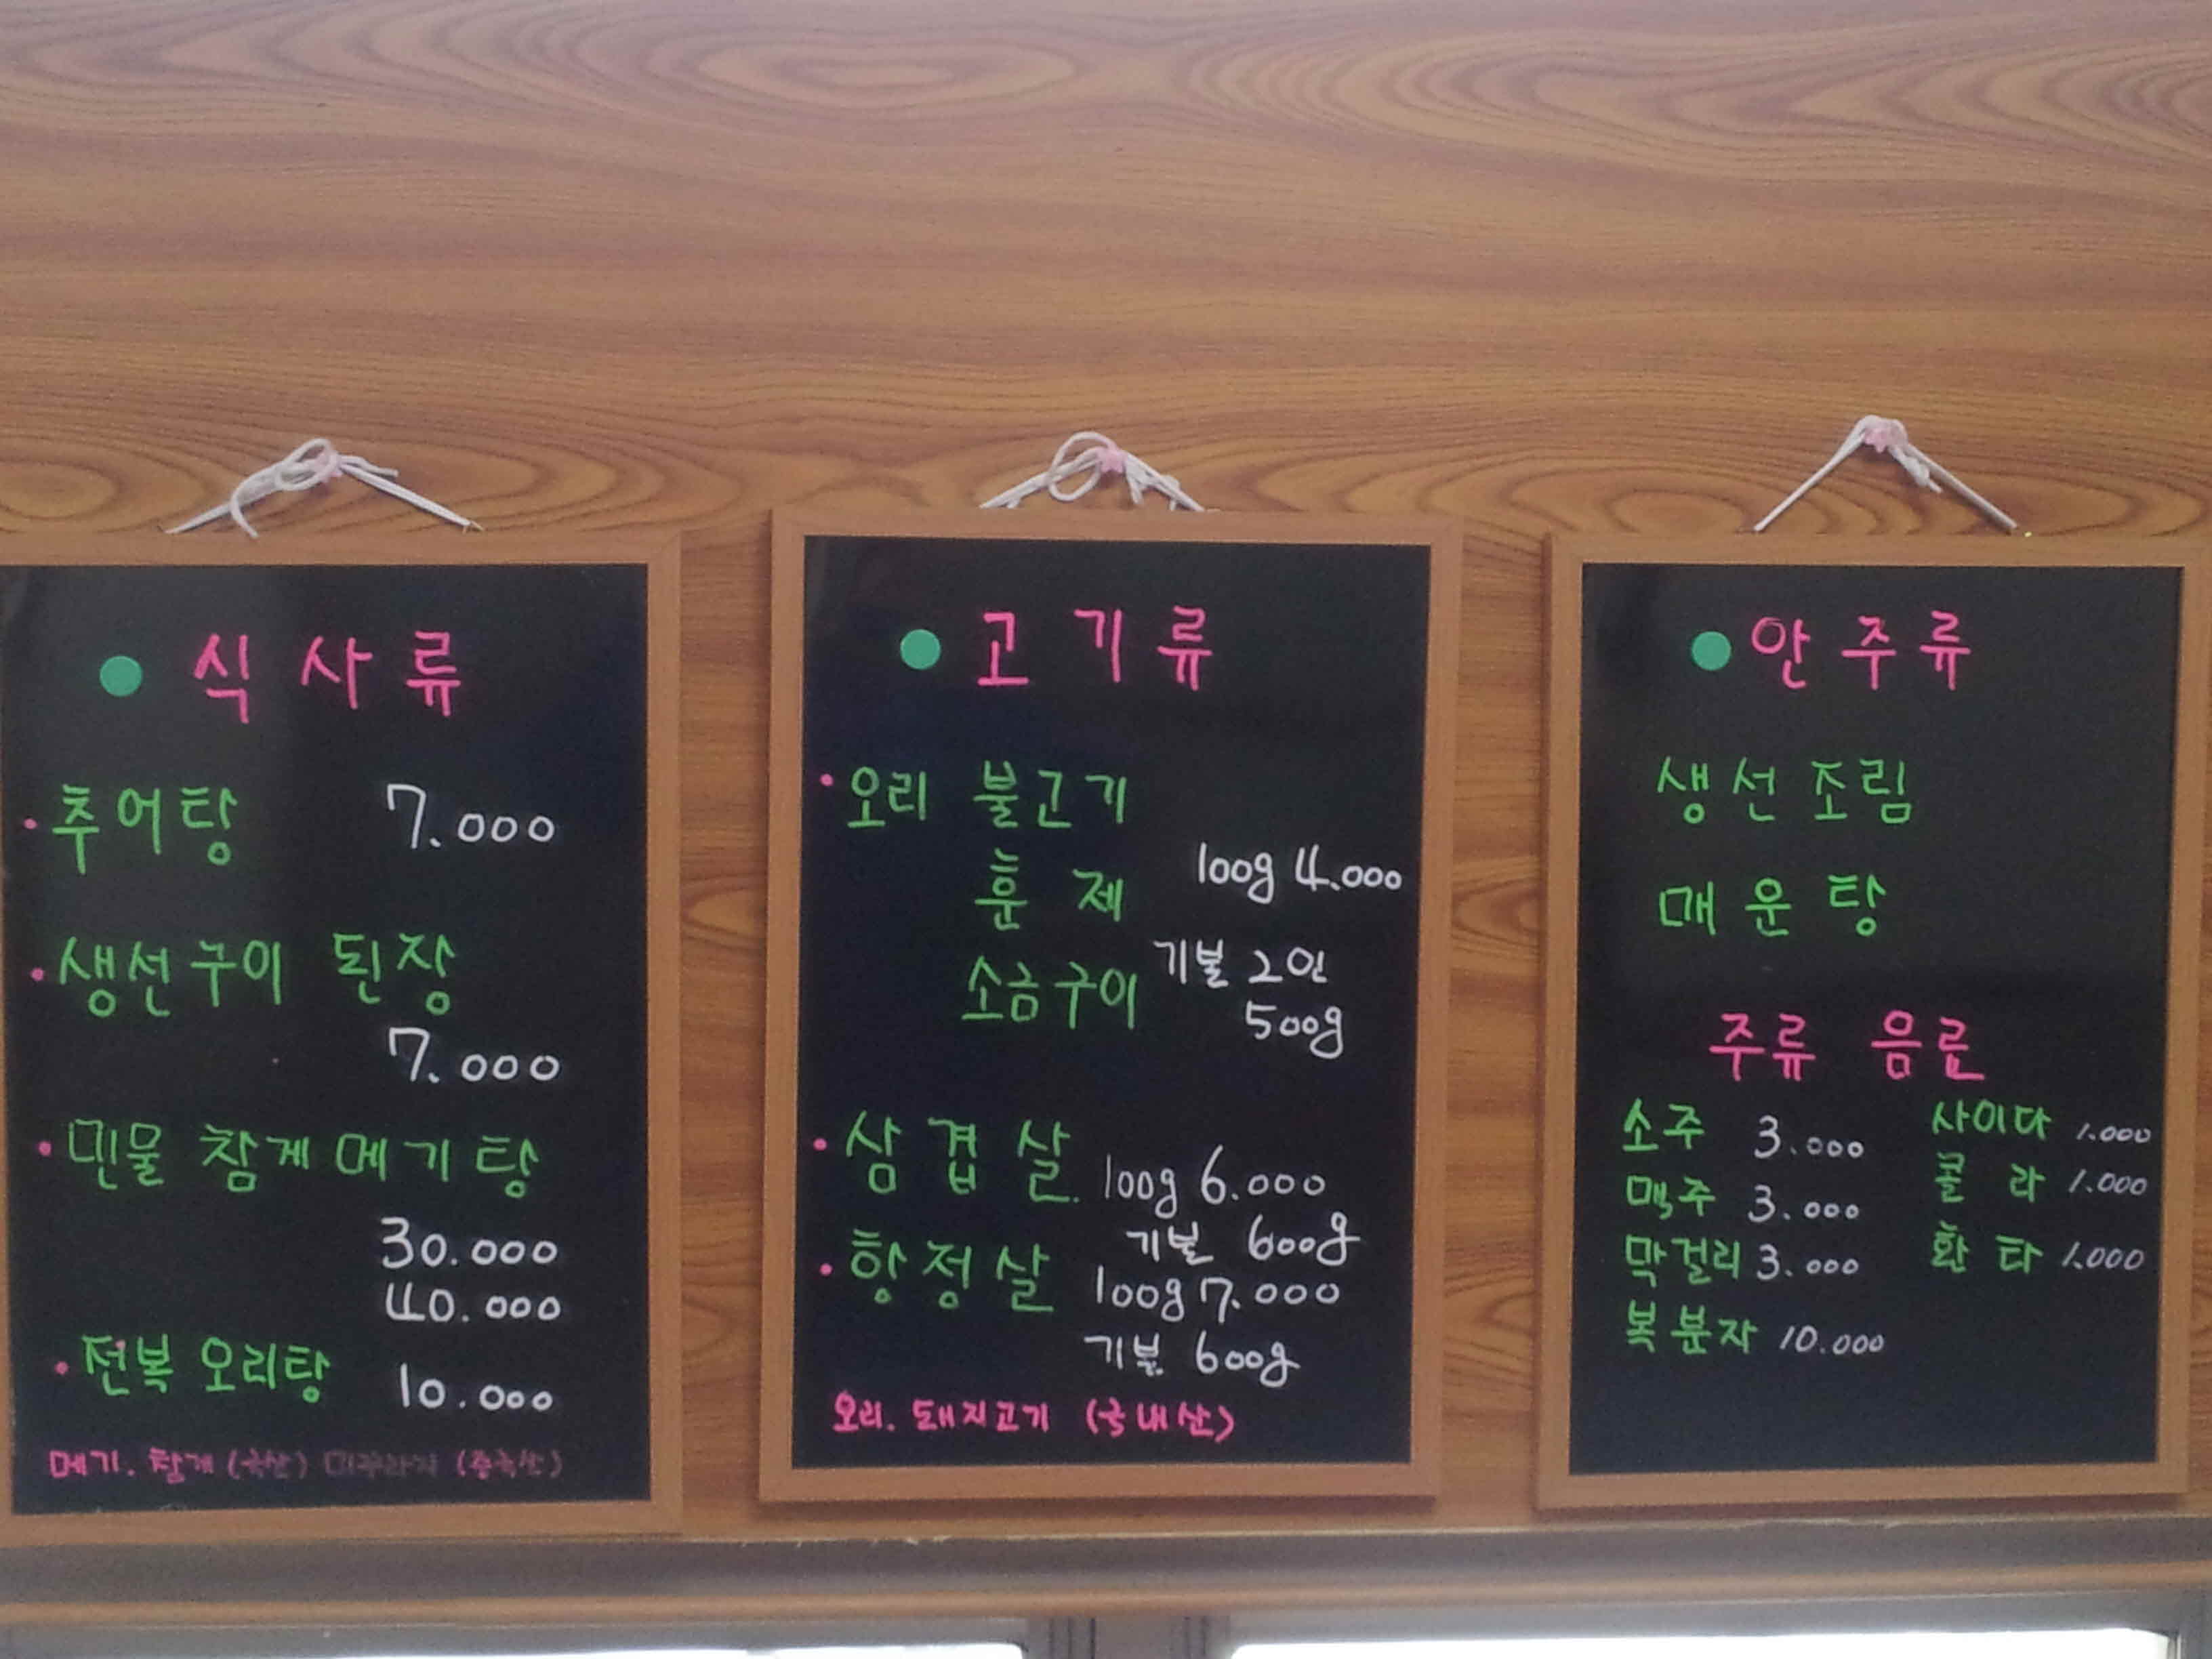 식사류
추어탕 7.000
생선구이 된장
7.000
민물 참게메기탕
30.000
40.000
전복 오리탕 10.000
메기. 참게 (국산) 미꾸라지 (중국산)
고기류
오리 불고기
훈제 100g 4.000
소금구이 기본 2인
500g
삼겹살 100g 6.000
기본 600g
항정살 100g 7.000
기본 600g
오리. 돼지고기 (국내산)
안주류
생선조림
매운탕
주류 음료
소주 3.000 사이다 1.000
맥주 3.000 콜라 1.000
막걸리 3.000 환타 1.000
복분자 10.000